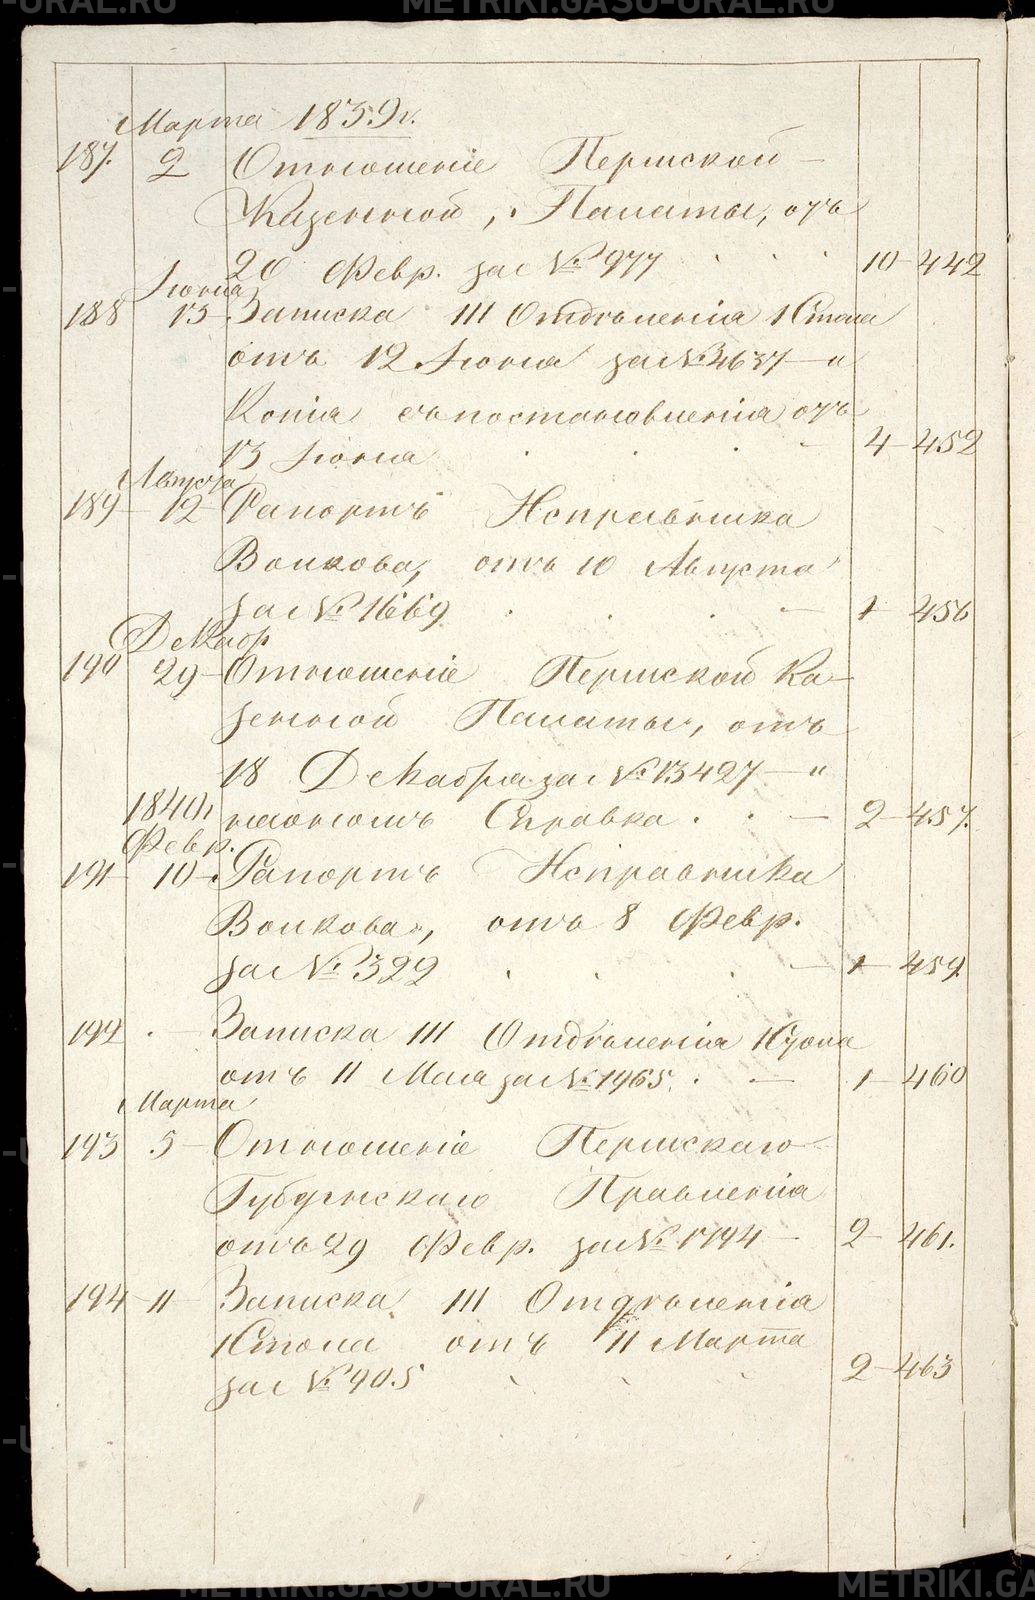 -URAL.RU METRIKI.GASU-URAL.RU
Марта 1839 г.
187. 2 Отношеніе Пермской
Казенной, Палаты, отъ
20 Февр. за № 977 10 - 442
Іюня
188 13 - Записка III Отдѣленія 1 Стола
отъ 12 Іюня за № 4637 - и
Копія съ постановленія отъ
13 Іюня 4 - 452
Августа
189 - 12 Рапортъ Исправника
Волкова, отъ 10 Августа
за № 1669 1 - 456
Декабр
190 29 - Отношеніе Пермской Ка-
зенной Палаты, отъ
18 Декабря за № 13427 - и
1840 г. на ономъ Справка. - 2 - 457.
Февр.
191 - 10 - Рапортъ Исправника
Волкова, отъ 8 Февр.
за № 329 1 - 459.
192 - Записка III Отдѣленія 1 Стола
отъ 11 Мая за № 1965. - 1 - 460
Марта
193 5 - Отношеніе Пермскаго
Губернскаго Правленія
отъ 29 Февр. за № 1794 - 2 - 461.
194 - 11 - Записка III Отдѣленія
1 Стола отъ 11 Марта
за № 905 2 - 463
METRIKI.GASU-URAL.RU METRIKI.GA